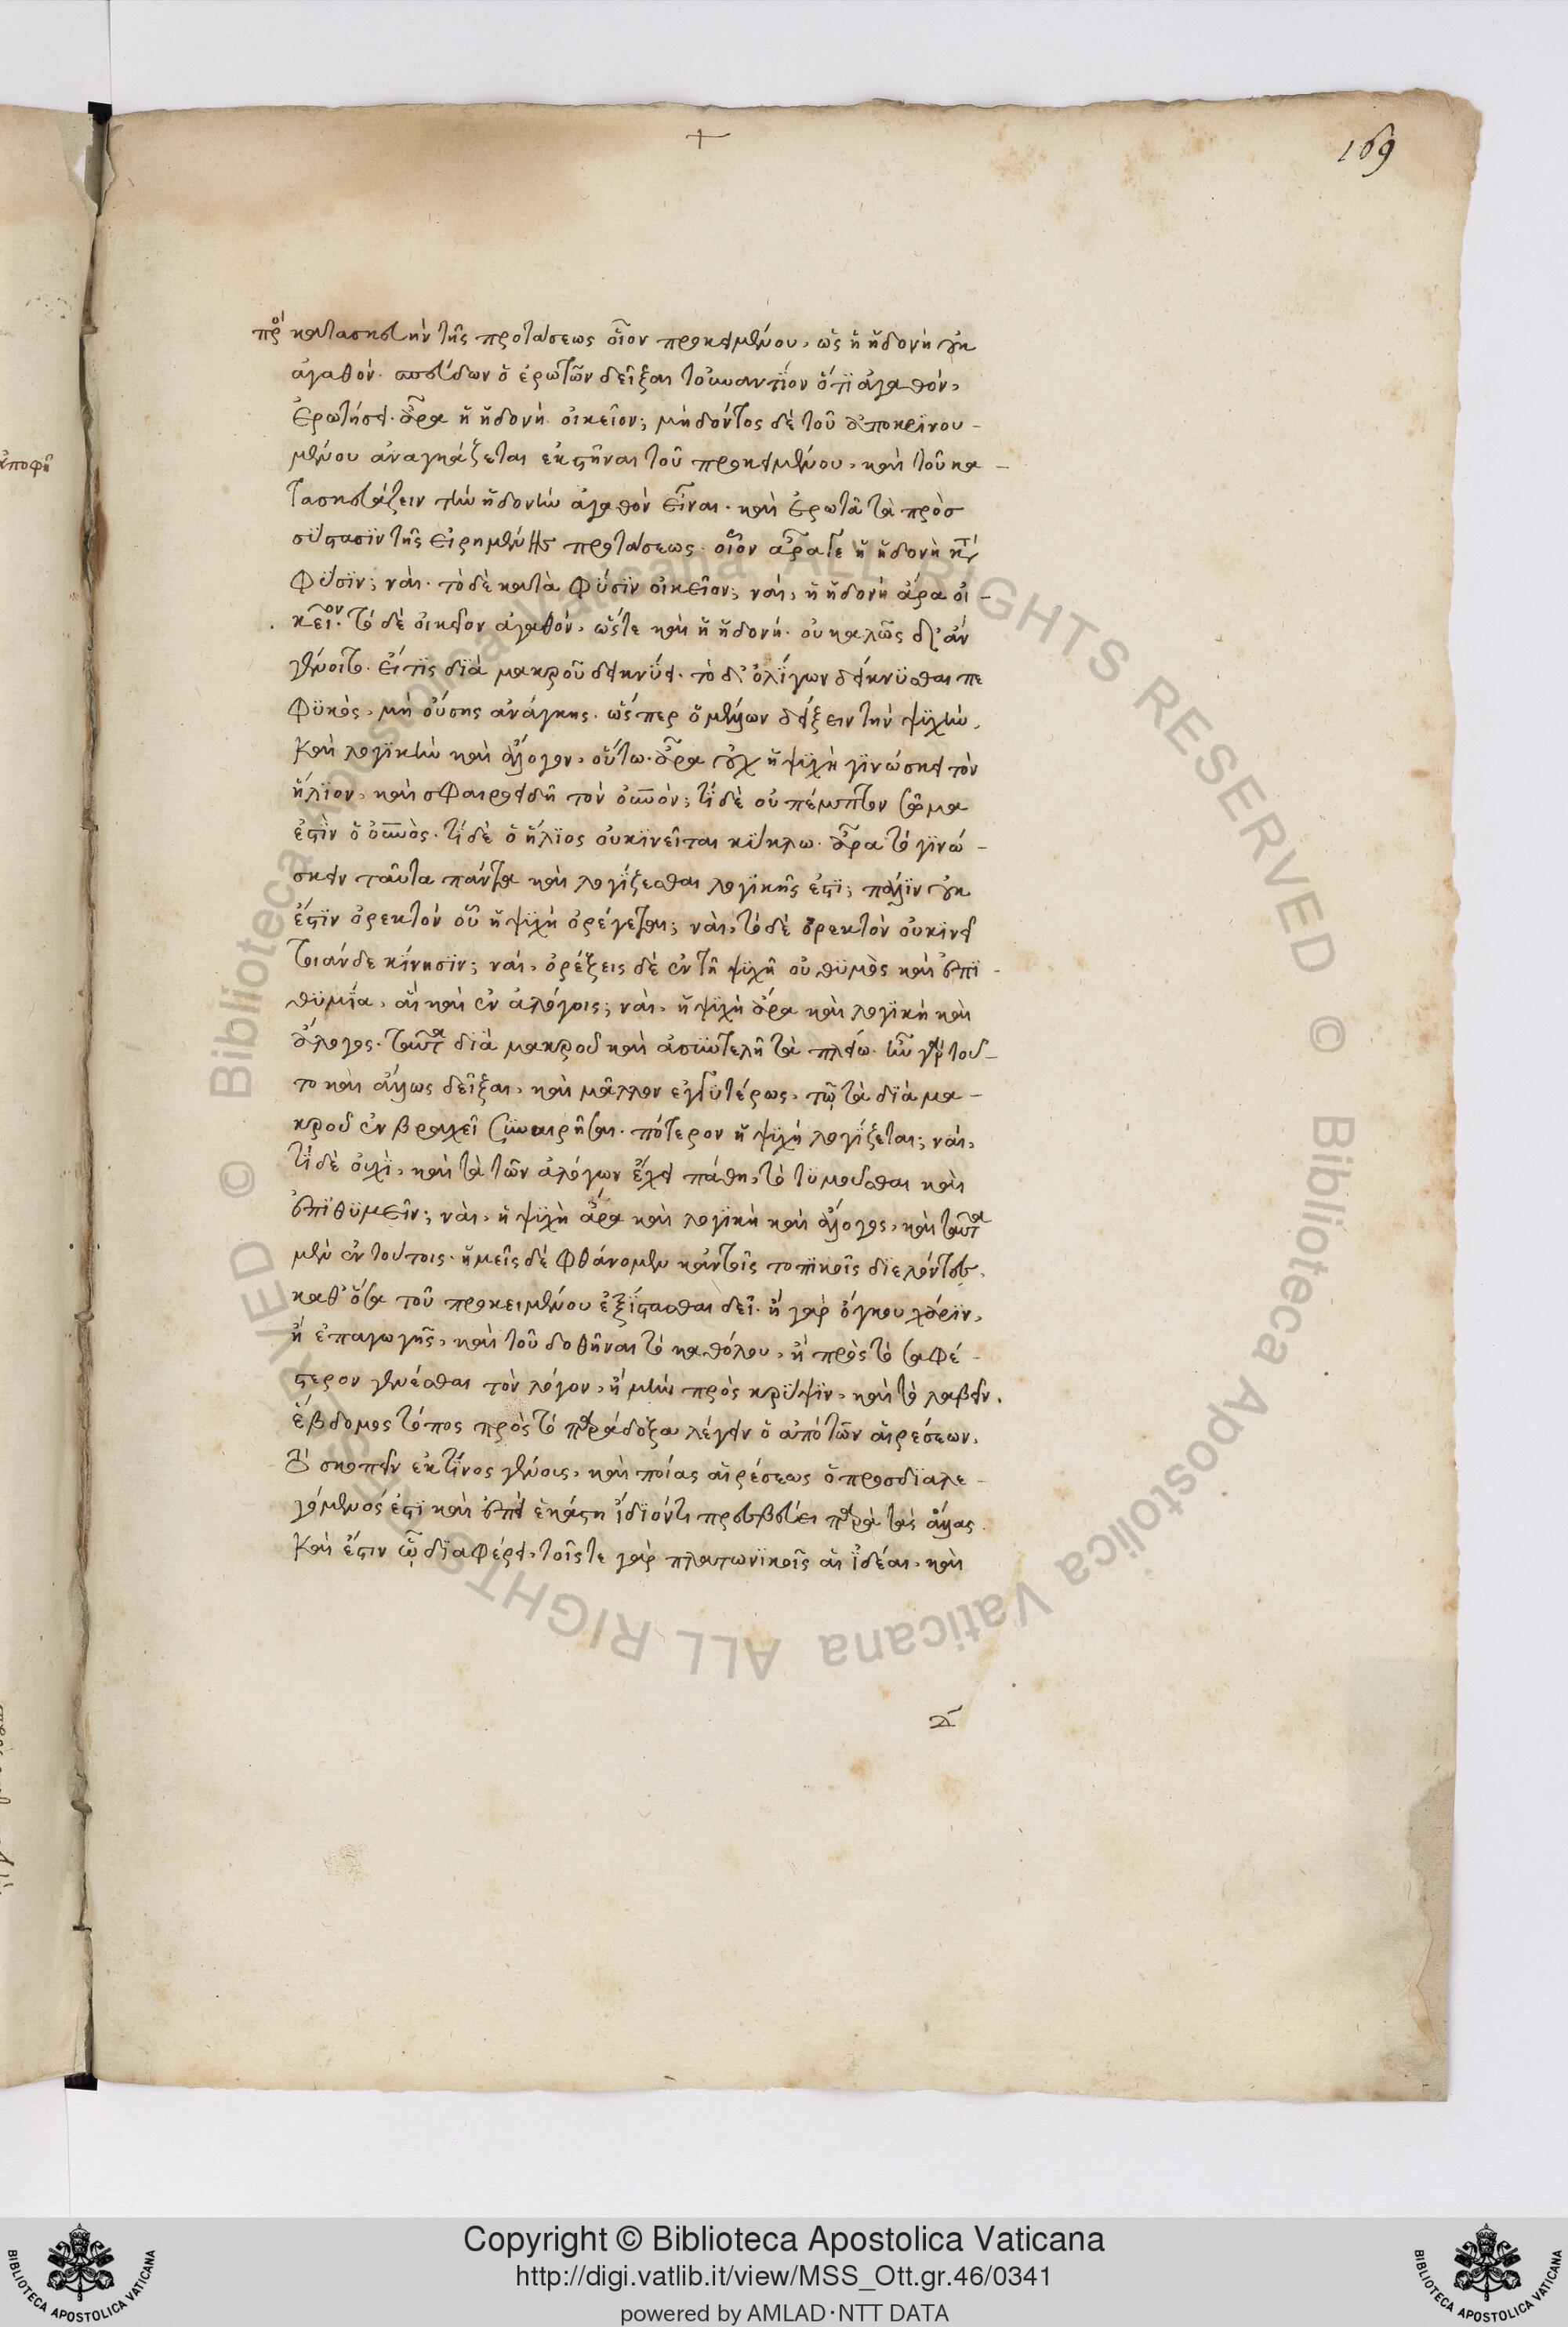 +
169
πρὸς κατασκευὴν τῆς προτάσεως οἷον προκειμένου, ὡς ἡ ἡδονὴ οὐκ
ἀγαθόν. σπεύδων ὁ ἐρωτῶν δεῖξαι τοὐναντίον ὅτι ἀγαθόν,
ἐρωτήσει. ἆρα ἡ ἡδονὴ οἰκεῖον; μὴ δόντος δὲ τοῦ ἀποκρινου-
μένου ἀναγκάζεται ἐκστῆναι τοῦ προκειμένου, καὶ τοῦ κα-
τασκευάζειν τὴν ἡδονὴν ἀγαθὸν εἶναι. καὶ ἐρωτᾶ τὰ πρὸσ
σύστασιν τῆς εἰρημένης προτάσεως. οἷον ἆρα γε ἡ ἡδονὴ κατὰ
φύσιν; ναί. τὸ δὲ κατὰ φύσιν οἰκεῖον; ναί, ἡ ἡδονὴ ἄρα οἰ-
κεῖον. τὸ δὲ οἰκεῖον ἀγαθόν, ὥστε καὶ ἡ ἡδονή. οὐ καλῶς δ' ἂν
γένοιτο. εἴ τις διὰ μακροῦ δεικνύει. τὸ δι' ὀλίγων δείκνυσθαι πε
φυκὸς, μὴ οὔσης ἀνάγκης. ὥσπερ ὁ μέλλων δείξειν τὴν ψυχὴν,
καὶ λογικὴν καὶ ἄλογον, οὕτω. ἆρα οὐχ ἡ ψυχὴ γινώσκει τὸν
ἥλιον, καὶ σφαιροειδῆ τὸν οὐνὸν; τί δὲ οὐ πέμπτον σῶμα
ἐστὶν ὁ οὐνὸς. τί δὲ ὁ ἥλιος οὐ κινεῖται κύκλω. ἆρα τὸ γινώ-
σκειν ταῦτα πάντα καὶ λογίζεσθαι λογικῆς ἐστι; πάλιν οὐκ
ἔστιν ὀρεκτὸν οὗ ἡ ψυχὴ ὀρέγεται; ναί, τὸ δὲ ὀρεκτὸν οὐ κινεῖ
τοιάνδε κίνησιν; ναί, ὀρέξεις δὲ ἐν τῆ ψυχῆ οὐ θυμὸς καὶ ἐπι-
θυμία, αἳ καὶ ἐν ἀλόγοις; ναί, ἡ ψυχὴ ἄρα καὶ λογικὴ καὶ
ἄλογος. ταῦτα διὰ μακροῦ καὶ ἀσυντελῆ τὰ πλείω. ἦν γὰρ τοῦ-
το καὶ ἄλλως δεῖξαι, καὶ μᾶλλον ἐγγυτέρως, τῷ τὰ διὰ μα-
κροῦ ἐν βραχεῖ συναιρῆσαι. πότερον ἡ ψυχὴ λογίζεται; ναί,
τί δὲ οὐχὶ, καὶ τὰ τῶν ἀλόγων ἔχει πάθη, τὸ θυμοῦσθαι καὶ
ἐπιθυμεῖν; ναί, ἡ ψυχὴ ἄρα καὶ λογικὴ καὶ ἄλογος, καὶ ταῦτα
μὲν ἐν τούτοις. ἡμεῖς δὲ φθάνομεν κἀν τοῖς τοπικοῖς διελόντες,
καθ' ὅσα τοῦ προκειμένου ἐξίστασθαι δεῖ. ἢ γὰρ ὄγκου χάριν,
ἢ ἐπαγωγῆς, καὶ τοῦ δοθῆναι τὸ καθόλου, ἢ πρὸς τὸ σαφέ-
στερον γενέσθαι τὸν λόγον, ἢ μὴν πρὸς κρύψιν, καὶ τὸ λαβεῖν.
ἕβδομος τόπος πρὸς τὸ παράδοξα λέγειν ὁ ἀπὸ τῶν αἱρέσεων.
τὸ σκοπεῖν ἐκ τίνος γένοις, καὶ ποίας αἱρέσεως ὁ προσδιαλε-
γόμενός ἐστι καὶ ἐπεὶ ἑκάστη ἴδιόν τι πρεσβεύει παρὰ τὰς ἄλλας.
καὶ ἔστιν ᾧ διαφέρει, τοῖς τε γὰρ πλατωνικοῖς αἱ ἰδέαι, καὶ
Copyright © Biblioteca Apostolica Vaticana
http://digi.vatlib.it/view/MSS_Ott.gr.46/0341
powered by AMLAD·NTT DATA